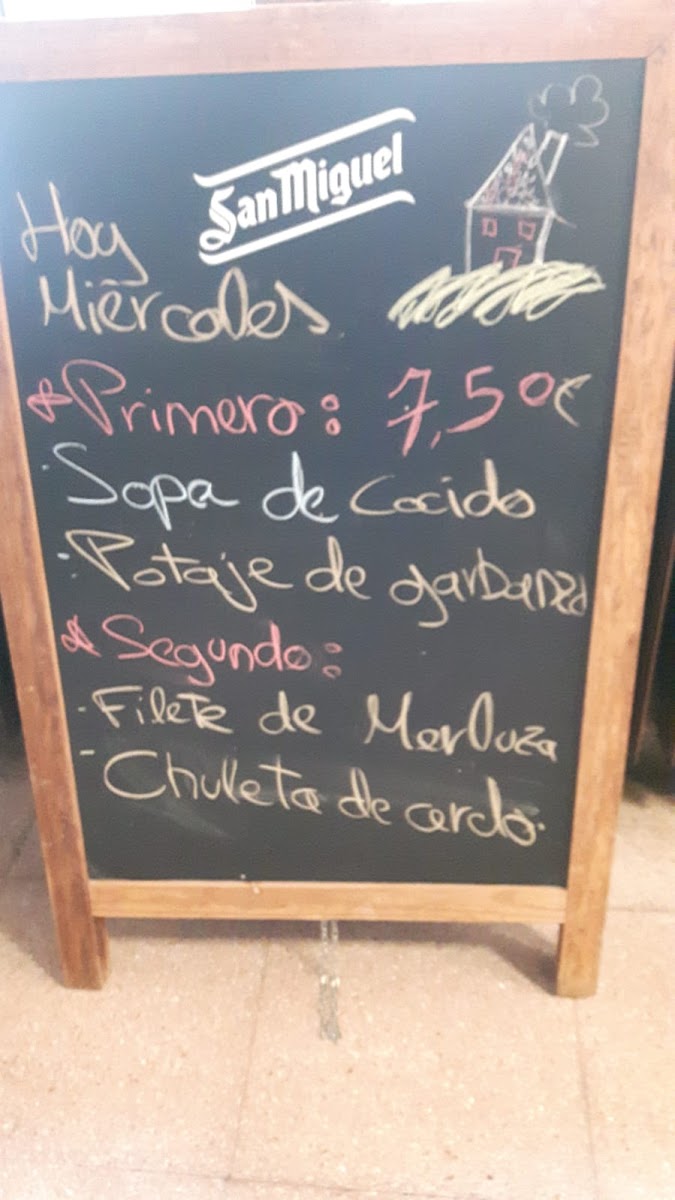 San Miguel
Hoy
Miércoles
Primero: 7,50€
· Sopa de cocido
· Potaje de garbanzo
Segundo:
- Filete de Merluza
- Chuleta de cerdo.